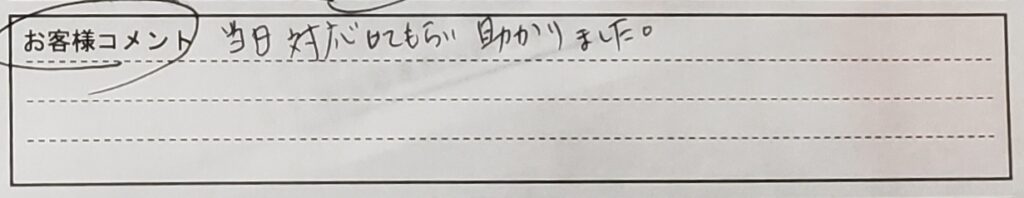 お客様コメント 当日対応してもらい助かりました。